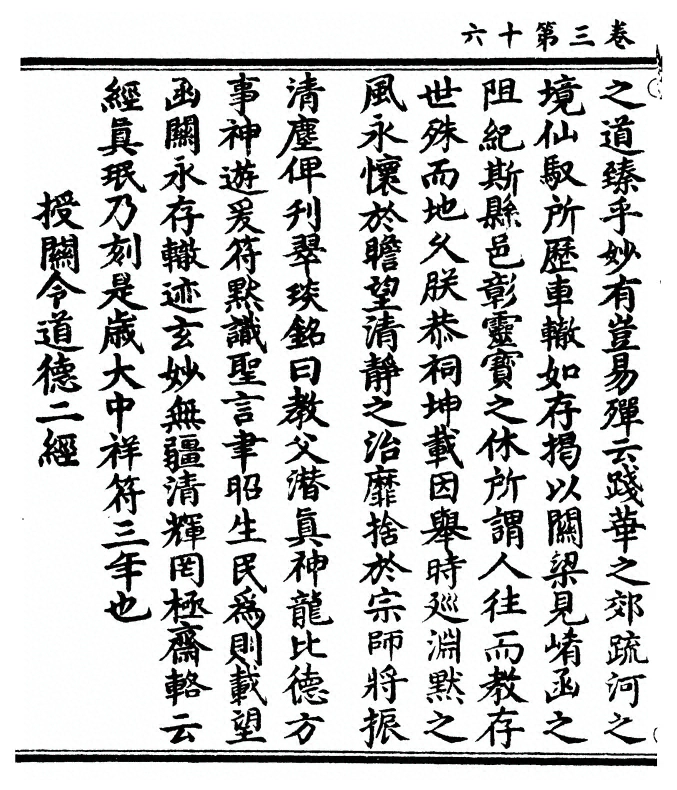 卷三第十六
之道臻乎妙有豈易殫云踐華之郊疏河之
境仙馭所歷車轍如存揭以關梁見崤函之
阻紀斯縣邑彰靈寳之休所謂人往而教存
世殊而地久朕恭祠坤載因舉時廵淵默之
風永懷於瞻望清靜之治靡捨於宗師將振
清塵俾刋翠琰銘曰教父潜眞神龍比德方
事神遊爰符默識聖言聿昭生民爲則載望
函關永存轍迹玄妙無疆清輝罔極齋輅云
經眞珉乃刻是歲大中祥符三年也
授關令道德二經